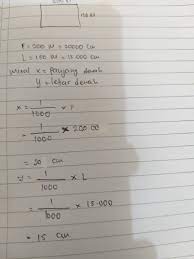 150 M
P = 200 M = 20000 Cm
L = 150 M = 15.000 Cm
Misal x = Panjang denah
y = lebar denah
x = 1/1000 x P
= 1/1000 x 200.00
= 20 cm
y = 1/1000 x L
= 1/1000 x 15.000
= 15 cm